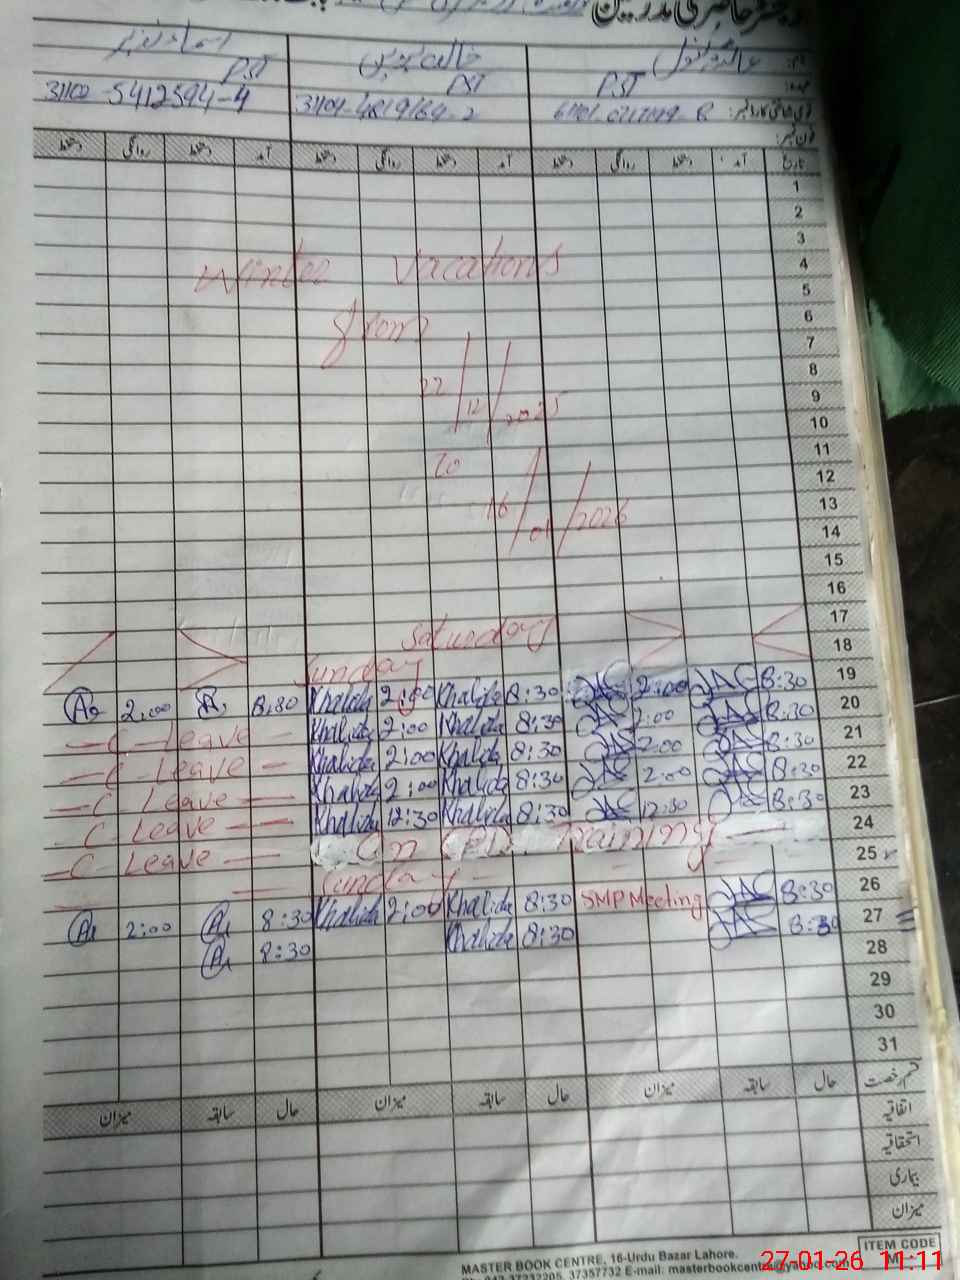 رجسٹر حاضری مدرسین
PST PST PST
31102-5412594-4
قومی شناختی کارڈ نمبر:
فون نمبر:
تاریخ آمد دستخط روانگی دستخط آمد دستخط روانگی دستخط آمد دستخط روانگی دستخط
1
2
3
4
Winter Vacations
5
6
from
7
8
22/12/2025
9
10
11
To
12
13
16/01/2026
14
15
16
17
Saturday
18
Sunday
19
A 2:00 A 8:30 Khalida 2:00 Khalida 8:30 2:00 8:30
20
C Leave Khalida 2:00 Khalida 8:30 2:00 8:30
21
C Leave Khalida 2:00 Khalida 8:30 2:00 8:30
22
C Leave Khalida 2:00 Khalida 8:30 2:00 8:30
23
C Leave Khalida 12:30 Khalida 8:30 12:30 8:30
24
C Leave On CPD Training
25
Sunday
26
2:00 8:30 Khalida 2:00 Khalida 8:30 SMP Meeting 8:30
27
8:30 Khalida 8:30 8:30
28
29
30
31
قسم رخصت حال سابقہ میزان حال سابقہ میزان حال سابقہ میزان
اتفاقیہ
استحقاقیہ
بیماری
میزان
ITEM CODE
MASTER BOOK CENTRE, 16-Urdu Bazar Lahore.
Ph: 042-37232205, 37357732 E-mail: masterbookcentre@yahoo.com
27-01-26 11:11